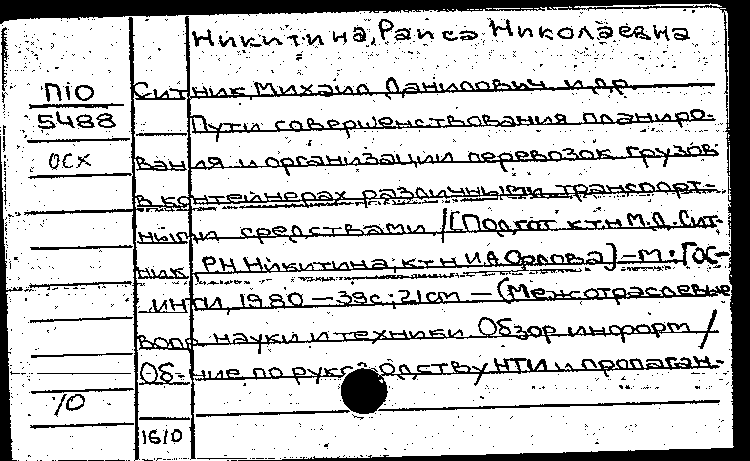 Никитина, Раиса Николаевна
П10 Ситник, Михаил Данилович и др.
5488 Пути совершенствования планиро-
осх вания и организации перевозок грузов
в контейнерах различными транспорт-
ными средствами / [Подгот. к.т.н М.Д. Сит-
ник, Р.Н. Никитина, к.т.н И.А. Орлова] — М.: [ОС-
инти, 1980 — 39с; 21см — (Межотраслевые
вопр. науки и техники Обзор. информ /
Об-ние по руководству НТИ и пропаган-
10
16/0